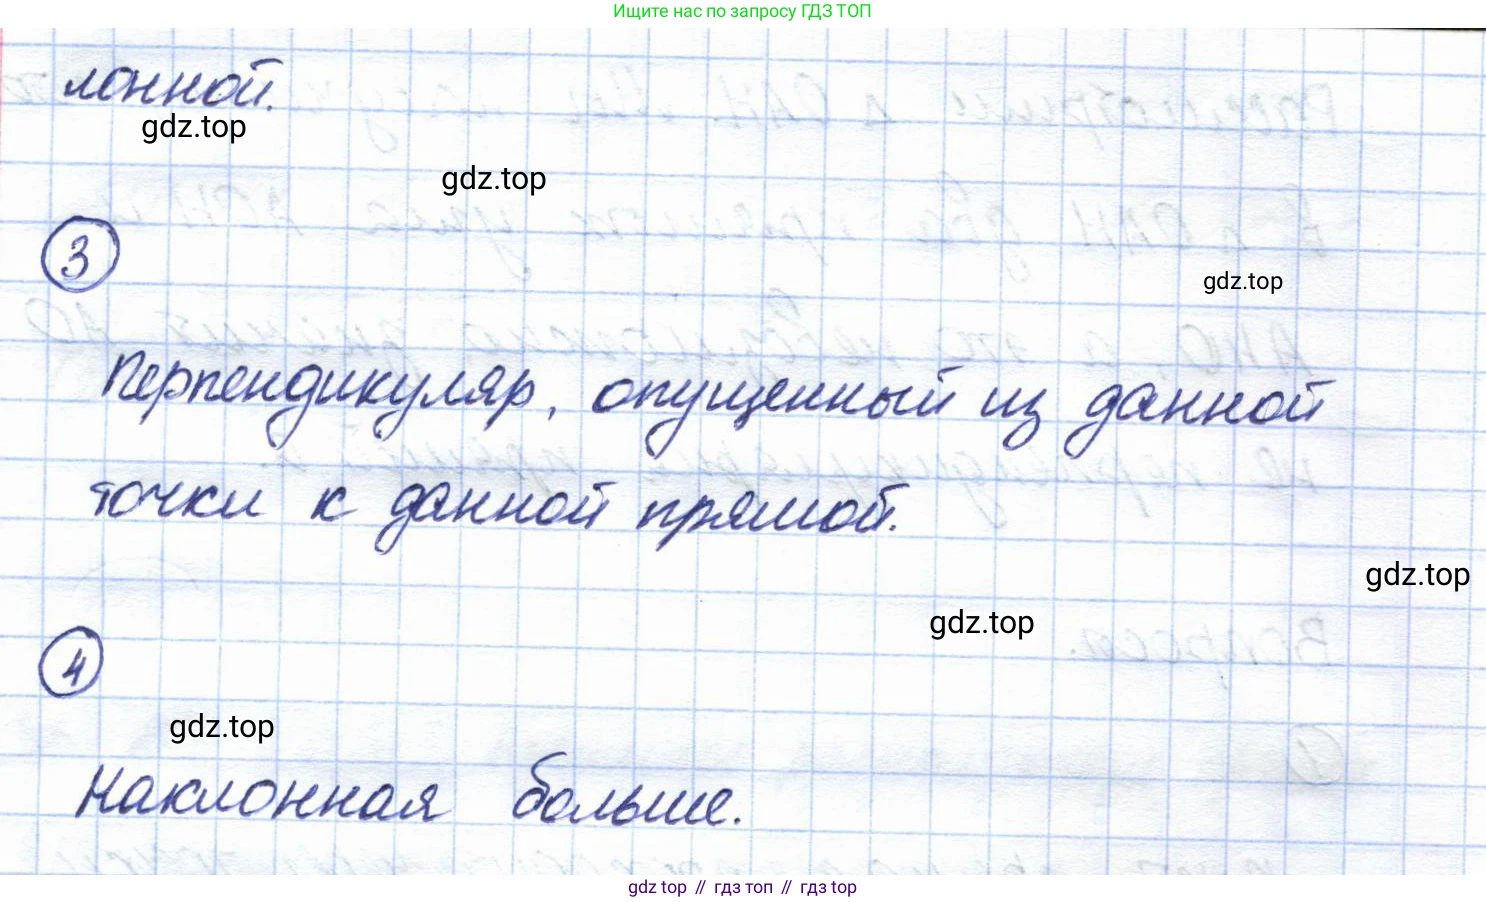 Ищите нас по запросу ГДЗ ТОП
лонной.
gdz.top
gdz.top
3
gdz.top
Перпендикуляр, опущенный из данной
точки к данной прямой.
gdz.top
gdz.top
4
gdz.top
Наклонная больше.
gdz top // гдз топ // gdz top